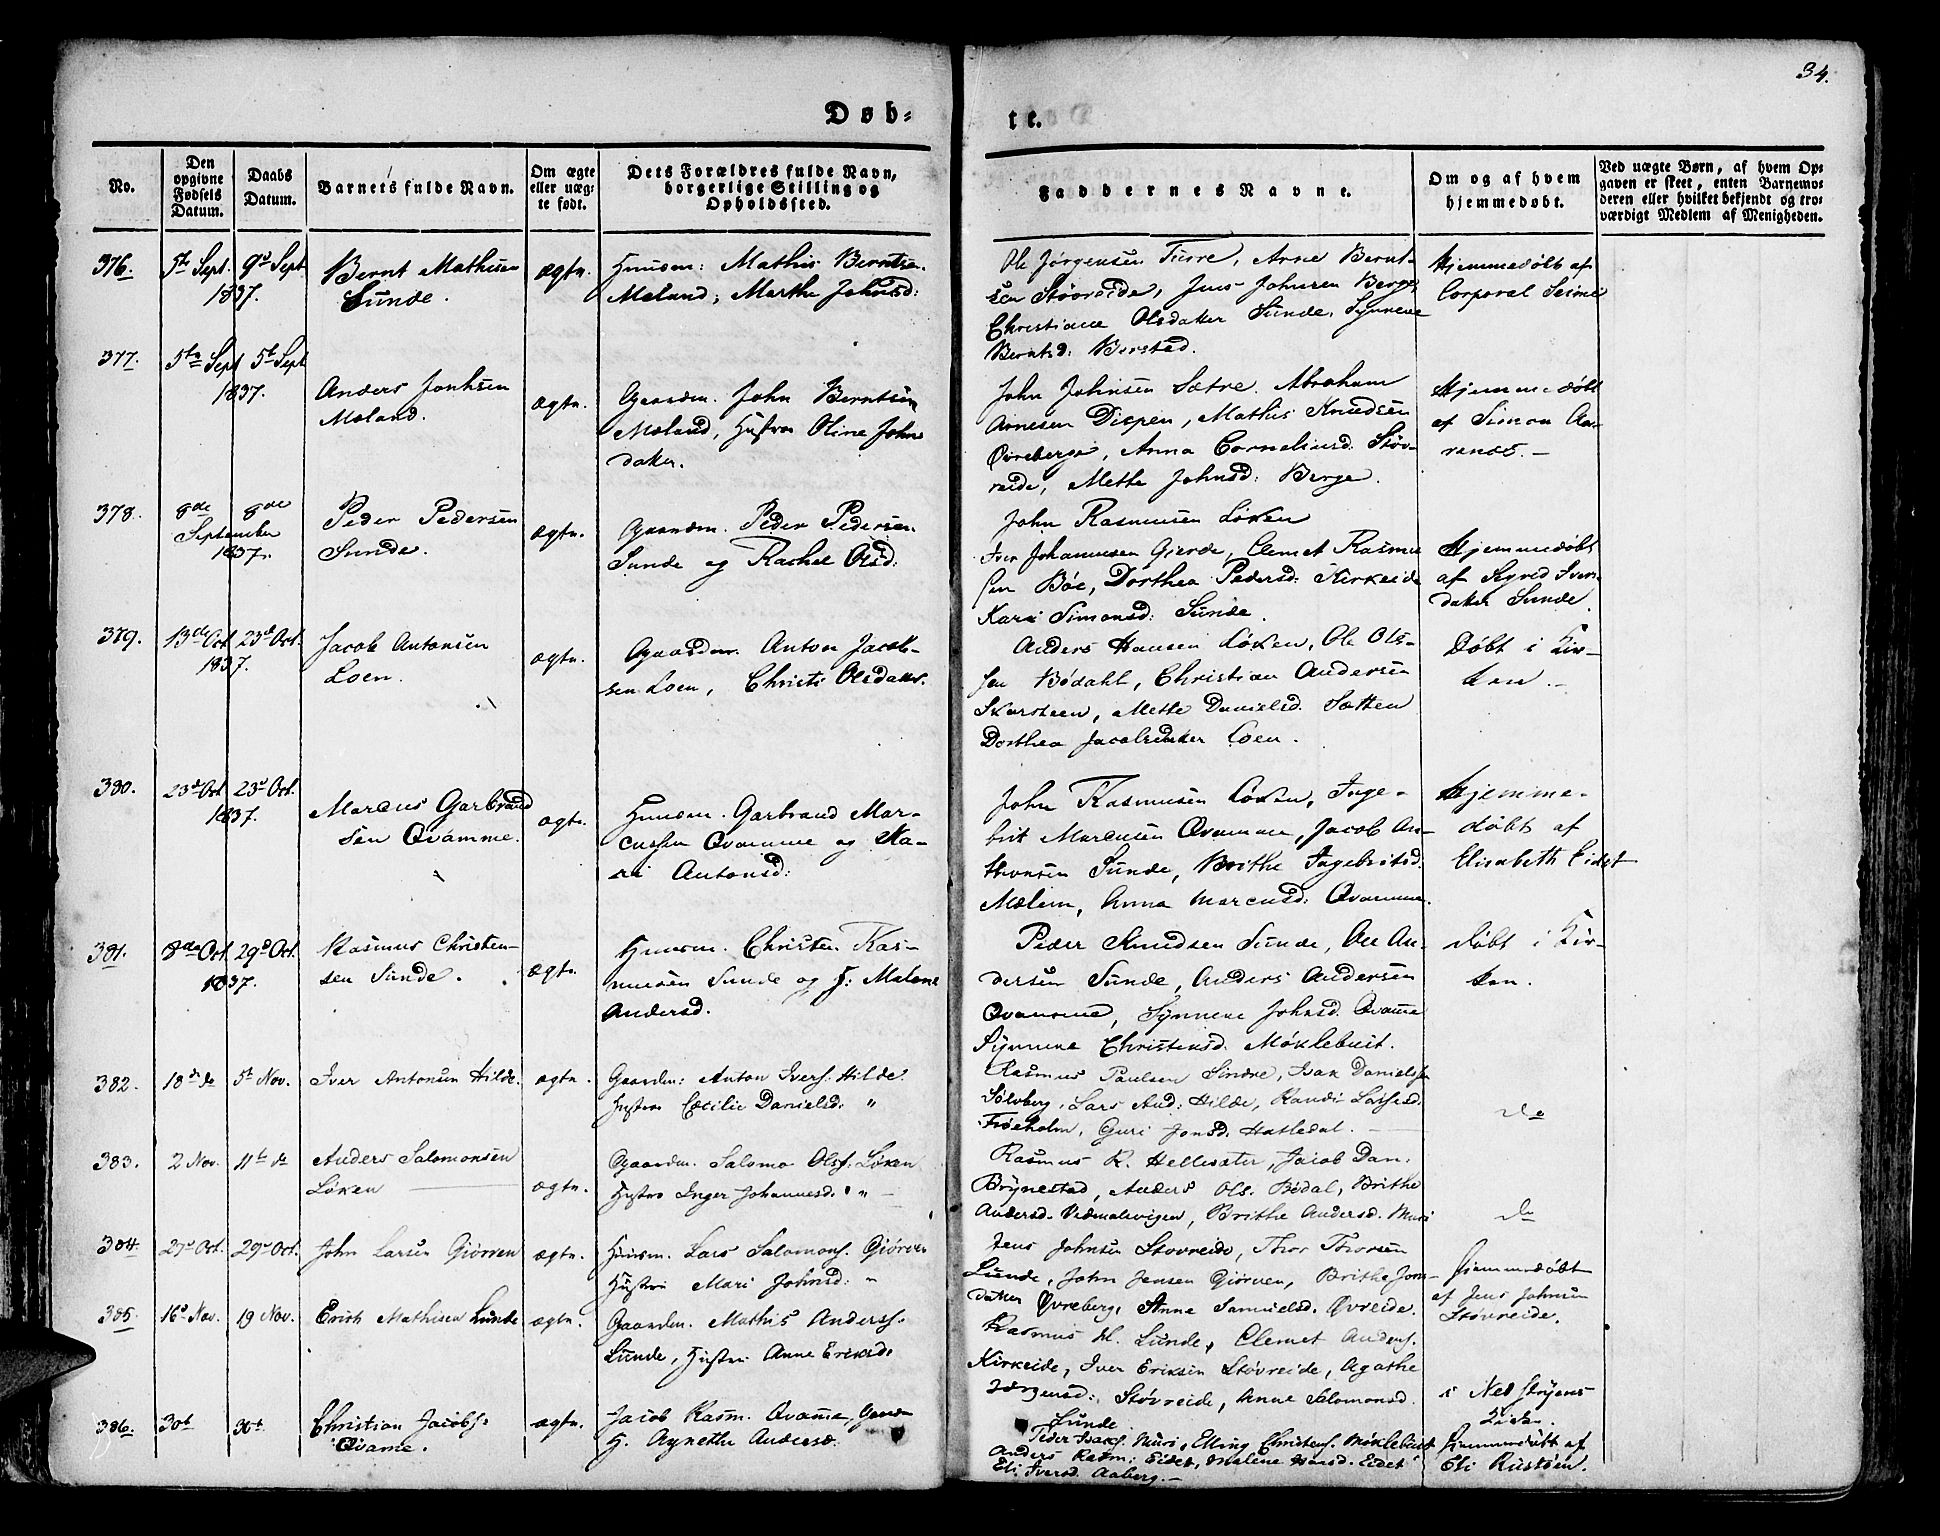 34.
Døb-
te.
No.
Den opgivne Fødsels Datum.
Daabs Datum.
Barnets fulde Navn.
Om ægte eller uægte født.
Dets Forældres fulde Navn, borgerlige Stilling og Opholdssted.
Faddernes Navne.
Om og af hvem hjemmedøbt.
Ved uægte Børn, af hvem Opgaven er skeet, enten Barnemoderen eller hvilket bekjendt og troværdigt Medlem af Menigheden.
376. 5te Sept. 9de Sept 1837.
Bernt Mathisen
Sunde.
ægte.
Huusm: Mathis Berntsen
Meland, Marthe Johnsd:
Ole Jørgensen Turre, Arne Bernt-
sen Støvreide, Jens Johnsen Berge,
Christiane Olsdatter Sunde, Synneve
Berntsd: Berstad.
Hjemmedøbt af
Corporal Seime
377. 5te Sept 5te Sept 1837.
Anders Jonhsen
Mæland.
ægte.
Gaardm. John Berntsen
Mæland, Hustro Oline Johns
datter.
John Johnsen Sætre. Abraham
Arnesen Dispen, Mathis Knudsen
Øvreberge, Anna Corneliusd. Støv-
reide, Mette Johnsd: Berge.
Hjemmedøbt
af Simon Aa-
renæs. —
378. 8de 8de September 1837.
Peder Pedersen
Sunde.
ægte.
Gaardm. Peder Pedersen
Sunde og Rachel Olsd:
John Rasmusen Løken
Iver Johannesen Gierde, Clemet Rasmu
sen Bøe, Dorthea Pedersd: Kirkeide
Kari Simonsd: Sunde.
Hjemmedøbt
af Sigrid Ivers-
datter Sunde.
379. 13de Oct. 23d Oct. 1837.
Jacob Antonsen
Loen.
ægte.
Gaardm. Anton Jacob-
sen Loen, Christi Olsdatter.
Anders Hansen Løken, Ole Ols-
sen Bødahl, Christian Andersen
Skarsteen, Mette Danielsd. Sætten
Dorthea Jacobsdatter Loen.
Døbt i Kir-
ken. —
380. 23d Oct 23d Oct. 1837.
Marcus Garbrand
sen Qvamme.
ægte.
Huusm. Garbrand Mar-
cussen Qvamme og Ka-
ri Antonsd:
John Rasmusen Løken, Inge-
brit Marcusen Qvamme, Jacob An-
thonsen Sunde, Brithe Ingebritsd.
Mælem, Anna Marcusd: Qvamme.
Hjemme-
døbt af
Elisabeth Eidet
381. 8de Oct. 29d Oct. 1837.
Rasmus Christen-
sen Sunde.
ægte.
Huusm. Christen Ras-
musen Sunde og H: Malene
Andersd.
Peder Knudsen Sunde, Ole An-
dersen Sunde, Anders Andersen
Qvamme, Synneve Johnsd. Qvamme
Synneve Christensd. Møklebust.
Døbt i Kir-
ken.
382. 18de do 5t Nov.
Iver Antonsen Hilde.
ægte.
Gaardm: Anton Ivers. Hilde.
Hustro Cæcilie Danielsd: "
Rasmus Paulsen Sindre, Isak Danielsen
Sølvberg, Lars And: Hilde, Randi Larsesd.
Frøeholm, Guri Jonsd. Hatledal. —
do
383. 2 Nov. 11te do
Anders Salomonsen
Løken
ægte.
Gaardm. Salomo Olss: Løken
Hustro Inger Johannesd. " —
Rasmus R. Hellesæter, Jacob Dan.
Brynestad, Anders Ols. Bødal, Brithe
Andersd. Vedmalevigen, Brithe Andersd. Muri
do
384. 27d Oct. 29d Oct.
John Larsen Giørven
ægte.
Huusm. Lars Salomons. Giørven
Hustro Mari Johnsd: "
Jens Johnsen Støvreide, Thor Thorsen
Lunde, John Jensen Giørven, Brithe Jons-
datter Øvreberg, Anne Samuelsd. Øvreide.
Hjemmedøbt
af Jens Johnsen
Støvreide.
385. 16d Nov. 19 Nov.
Erich Mathisen Lunde
ægte.
Gaardm. Mathis Anderss.
Lunde, Hustro Anne Eriksd.
Rasmus M. Lunde, Clemet Anders.
Kirkeide, Iver Eriksen Støvreide, Agathe
Jørgensd: Støvreide, Anne Salomonsd.
Sunde
i Ned Stryens
Kirke.
386. 30t 30t
Christian Jacobs.
Qvame.
ægte.
Jacob Rasm. Qvamme,
H. Agnethe Andersd.
Peder Isaks. Muri, Elling Christens. Møklebust
Anders Rasm: Eidet, Malene Hansd. Eidet
Eli Iversd. Aaberg. —
Hjemmedøbt af
Eli Rustøen.